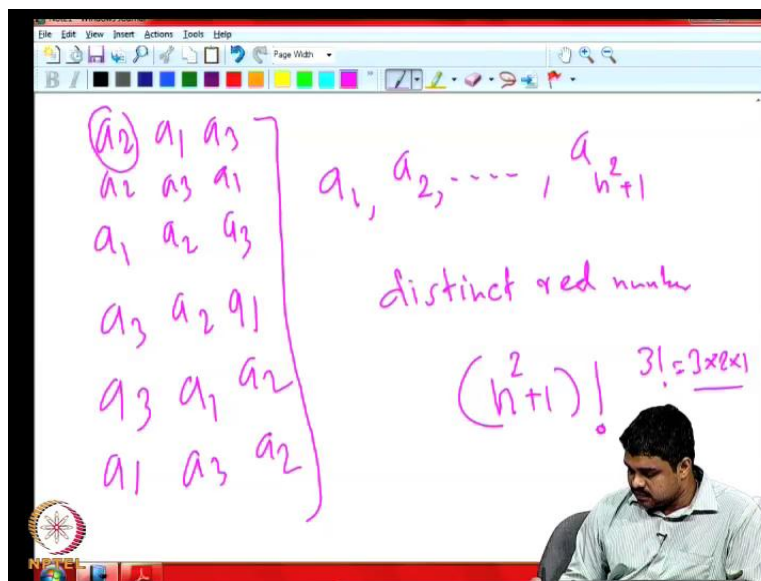 File Edit View Insert Actions Tools Help
Page Width
B I
a2 a1 a3
a2 a3 a1
a1 a2 a3
a3 a2 a1
a3 a1 a2
a1 a3 a2
a1, a2, ...., a n²+1
distinct red number
(n²+1)!
3! = 3×2×1
NPTEL